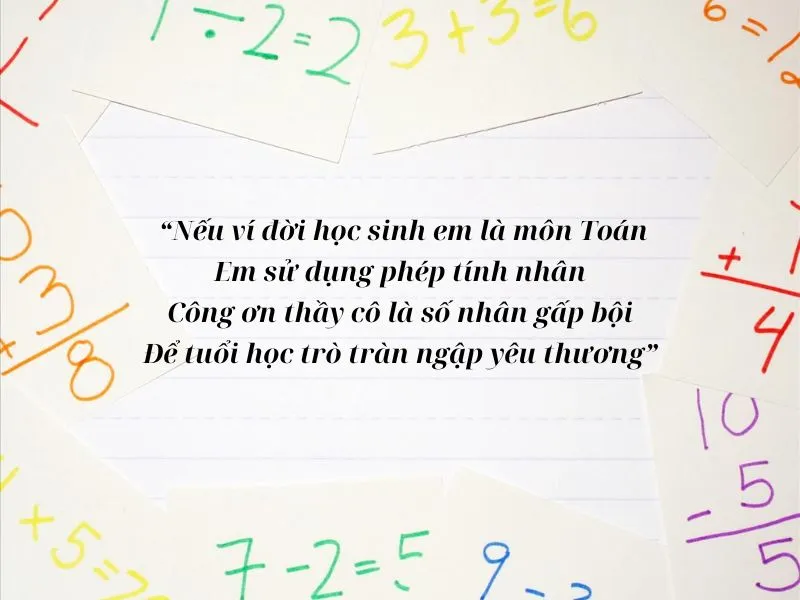 ÷ 2 = 2
3 + 3 = 6
6 =
“Nếu ví đời học sinh em là môn Toán
Em sử dụng phép tính nhân
Công ơn thầy cô là số nhân gấp bội
Để tuổi học trò tràn ngập yêu thương”
3
8
+
4
10
- 5
5
+ 5 =
7 - 2 = 5
9 -